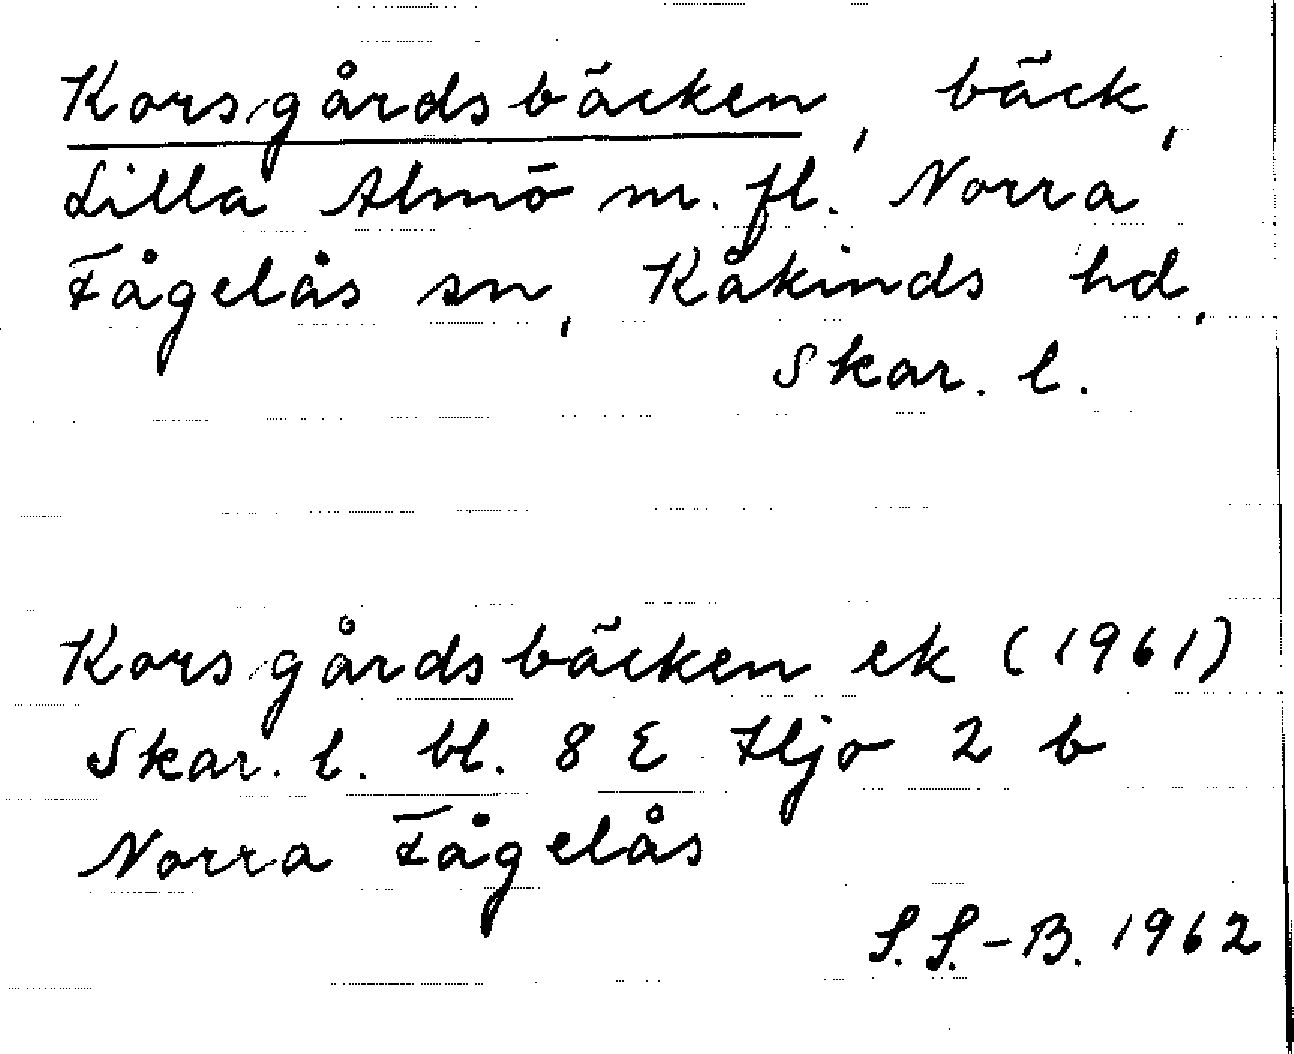 Kors/gårdsbäcken, bäck,
Lilla Almö m. fl. Norra
Fågelås sn, Kåkinds hd,
Skar. l.
Kors/gårdsbäcken ek (1961)
Skar. l. bl. 8 E Hjo 2 b
Norra Fågelås
S. S.-B. 1962